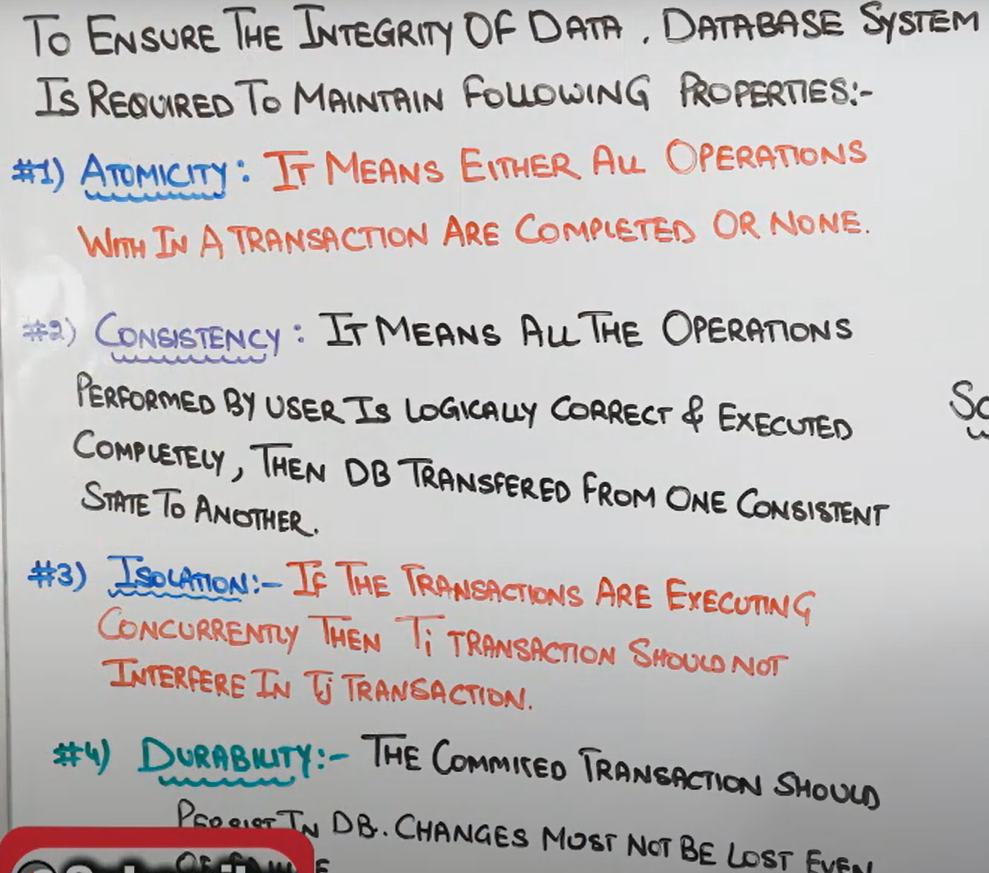 TO ENSURE THE INTEGRITY OF DATA, DATABASE SYSTEM
IS REQUIRED TO MAINTAIN FOLLOWING PROPERTIES:-
#1) ATOMICITY: IT MEANS EITHER ALL OPERATIONS
WITH IN A TRANSACTION ARE COMPLETED OR NONE.
#2) CONSISTENCY: IT MEANS ALL THE OPERATIONS
PERFORMED BY USER IS LOGICALLY CORRECT & EXECUTED
COMPLETELY, THEN DB TRANSFERED FROM ONE CONSISTENT
STATE TO ANOTHER.
#3) ISOLATION:- IF THE TRANSACTIONS ARE EXECUTING
CONCURRENTLY THEN Ti TRANSACTION SHOULD NOT
INTERFERE IN Tj TRANSACTION.
#4) DURABILITY:- THE COMMITED TRANSACTION SHOULD
PERSIST IN DB. CHANGES MUST NOT BE LOST EVEN